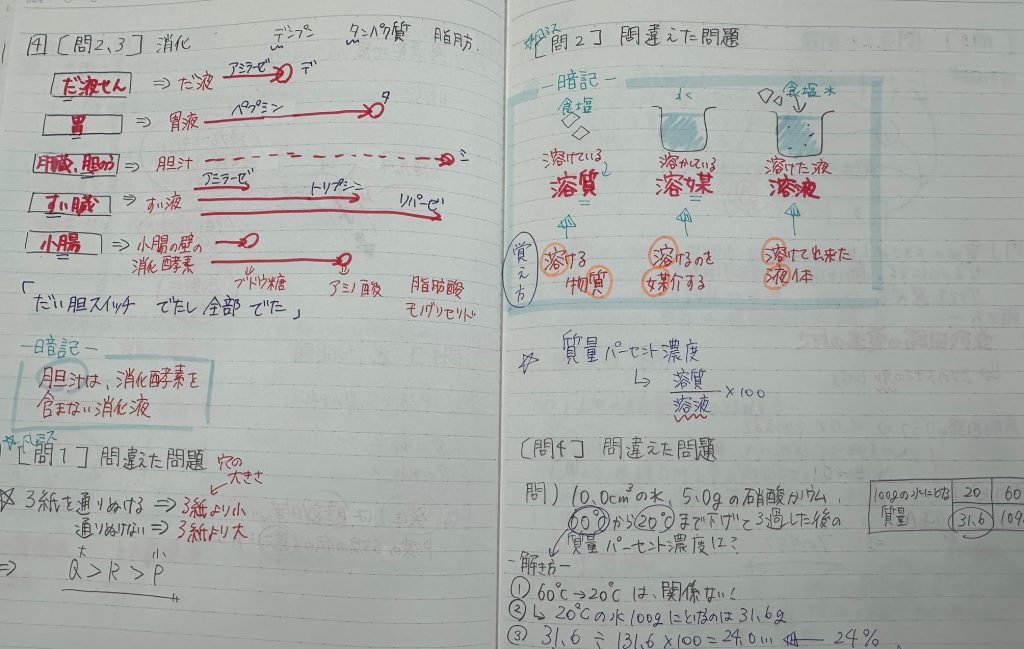 4 [問2、3] 消化
デンプン タンパク質 脂肪
だ液せん ⇒ だ液 アミラーゼ デ
胃 ⇒ 胃液 ペプミン タ
肝臓、胆のう ⇒ 胆汁 シ
すい臓 ⇒ すい液 アミラーゼ トリプシン リパーゼ
小腸 ⇒ 小腸の壁の
消化酵素
ブドウ糖 アミノ酸 脂肪酸
モノグリセリド
「だい胆スイッチ でたし全部でた」
-暗記-
胆汁は、消化酵素を
含まない消化液
☆凡ミス
[問1] 問違えた問題
穴の
大きさ
☆ ろ紙を通りぬける ⇒ ろ紙より小
通りぬけない ⇒ ろ紙より大
大 小
⇒ Q > R > P
凡ミス
[問2] 問違えた問題
-暗記-
食塩 水 食塩水
溶けている 溶かている 溶けた液
溶質 溶媒 溶液
覚え方
溶ける 溶けるのを 溶けて出来た
物質 媒介する 液体
☆ 質量パーセント濃度
↳ 溶質
溶液 ×100
[問4] 問違えた問題
問) 10.0cm³の水、5.0gの硝酸カリウム、
60℃から20℃まで下げてろ過した後の
質量パーセント濃度は?
100gの水にとける 20 60
質量 31.6 109.
-解き方-
① 60℃→20℃は、関係ない!
② ↳ 20℃の水100gにとけるのは31.6g
③ 31.6 ÷ 131.6 ×100 = 24.0… ← 24%